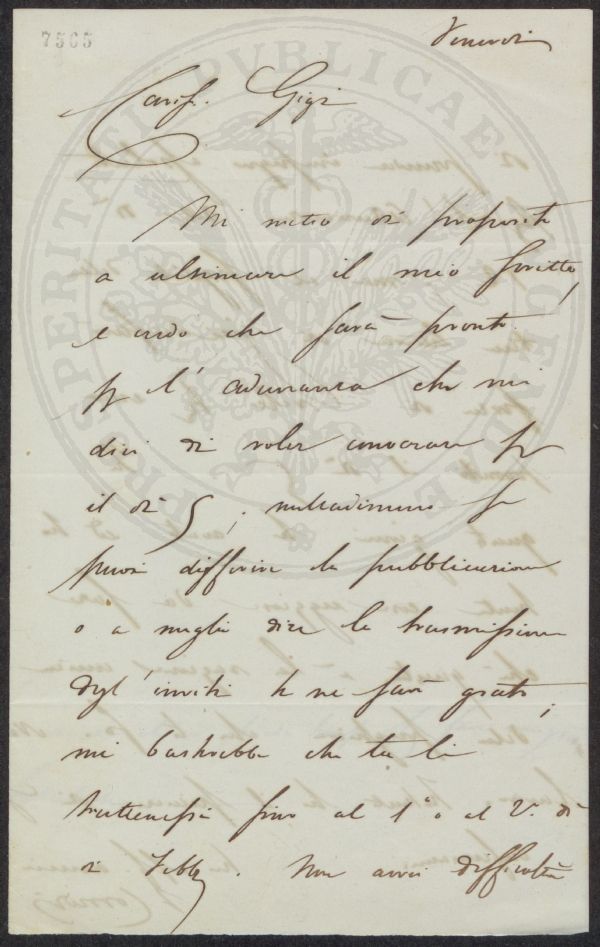 7565
Venerdì
Cariss. Gigi
Mi metto di proposito
a ultimare il mio scritto,
e credo che sarà pronto
p l'adunanza che mi
dici di voler convocare p
il dì 5; nulladimeno se
puoi differire la pubblicazione
o a meglio dire la trasmissione
degl'inviti te ne sarò grato;
mi basterebbe che tu li
trattenessi fino al 1° o al 2° dì
di Febb. Non avrei difficoltà